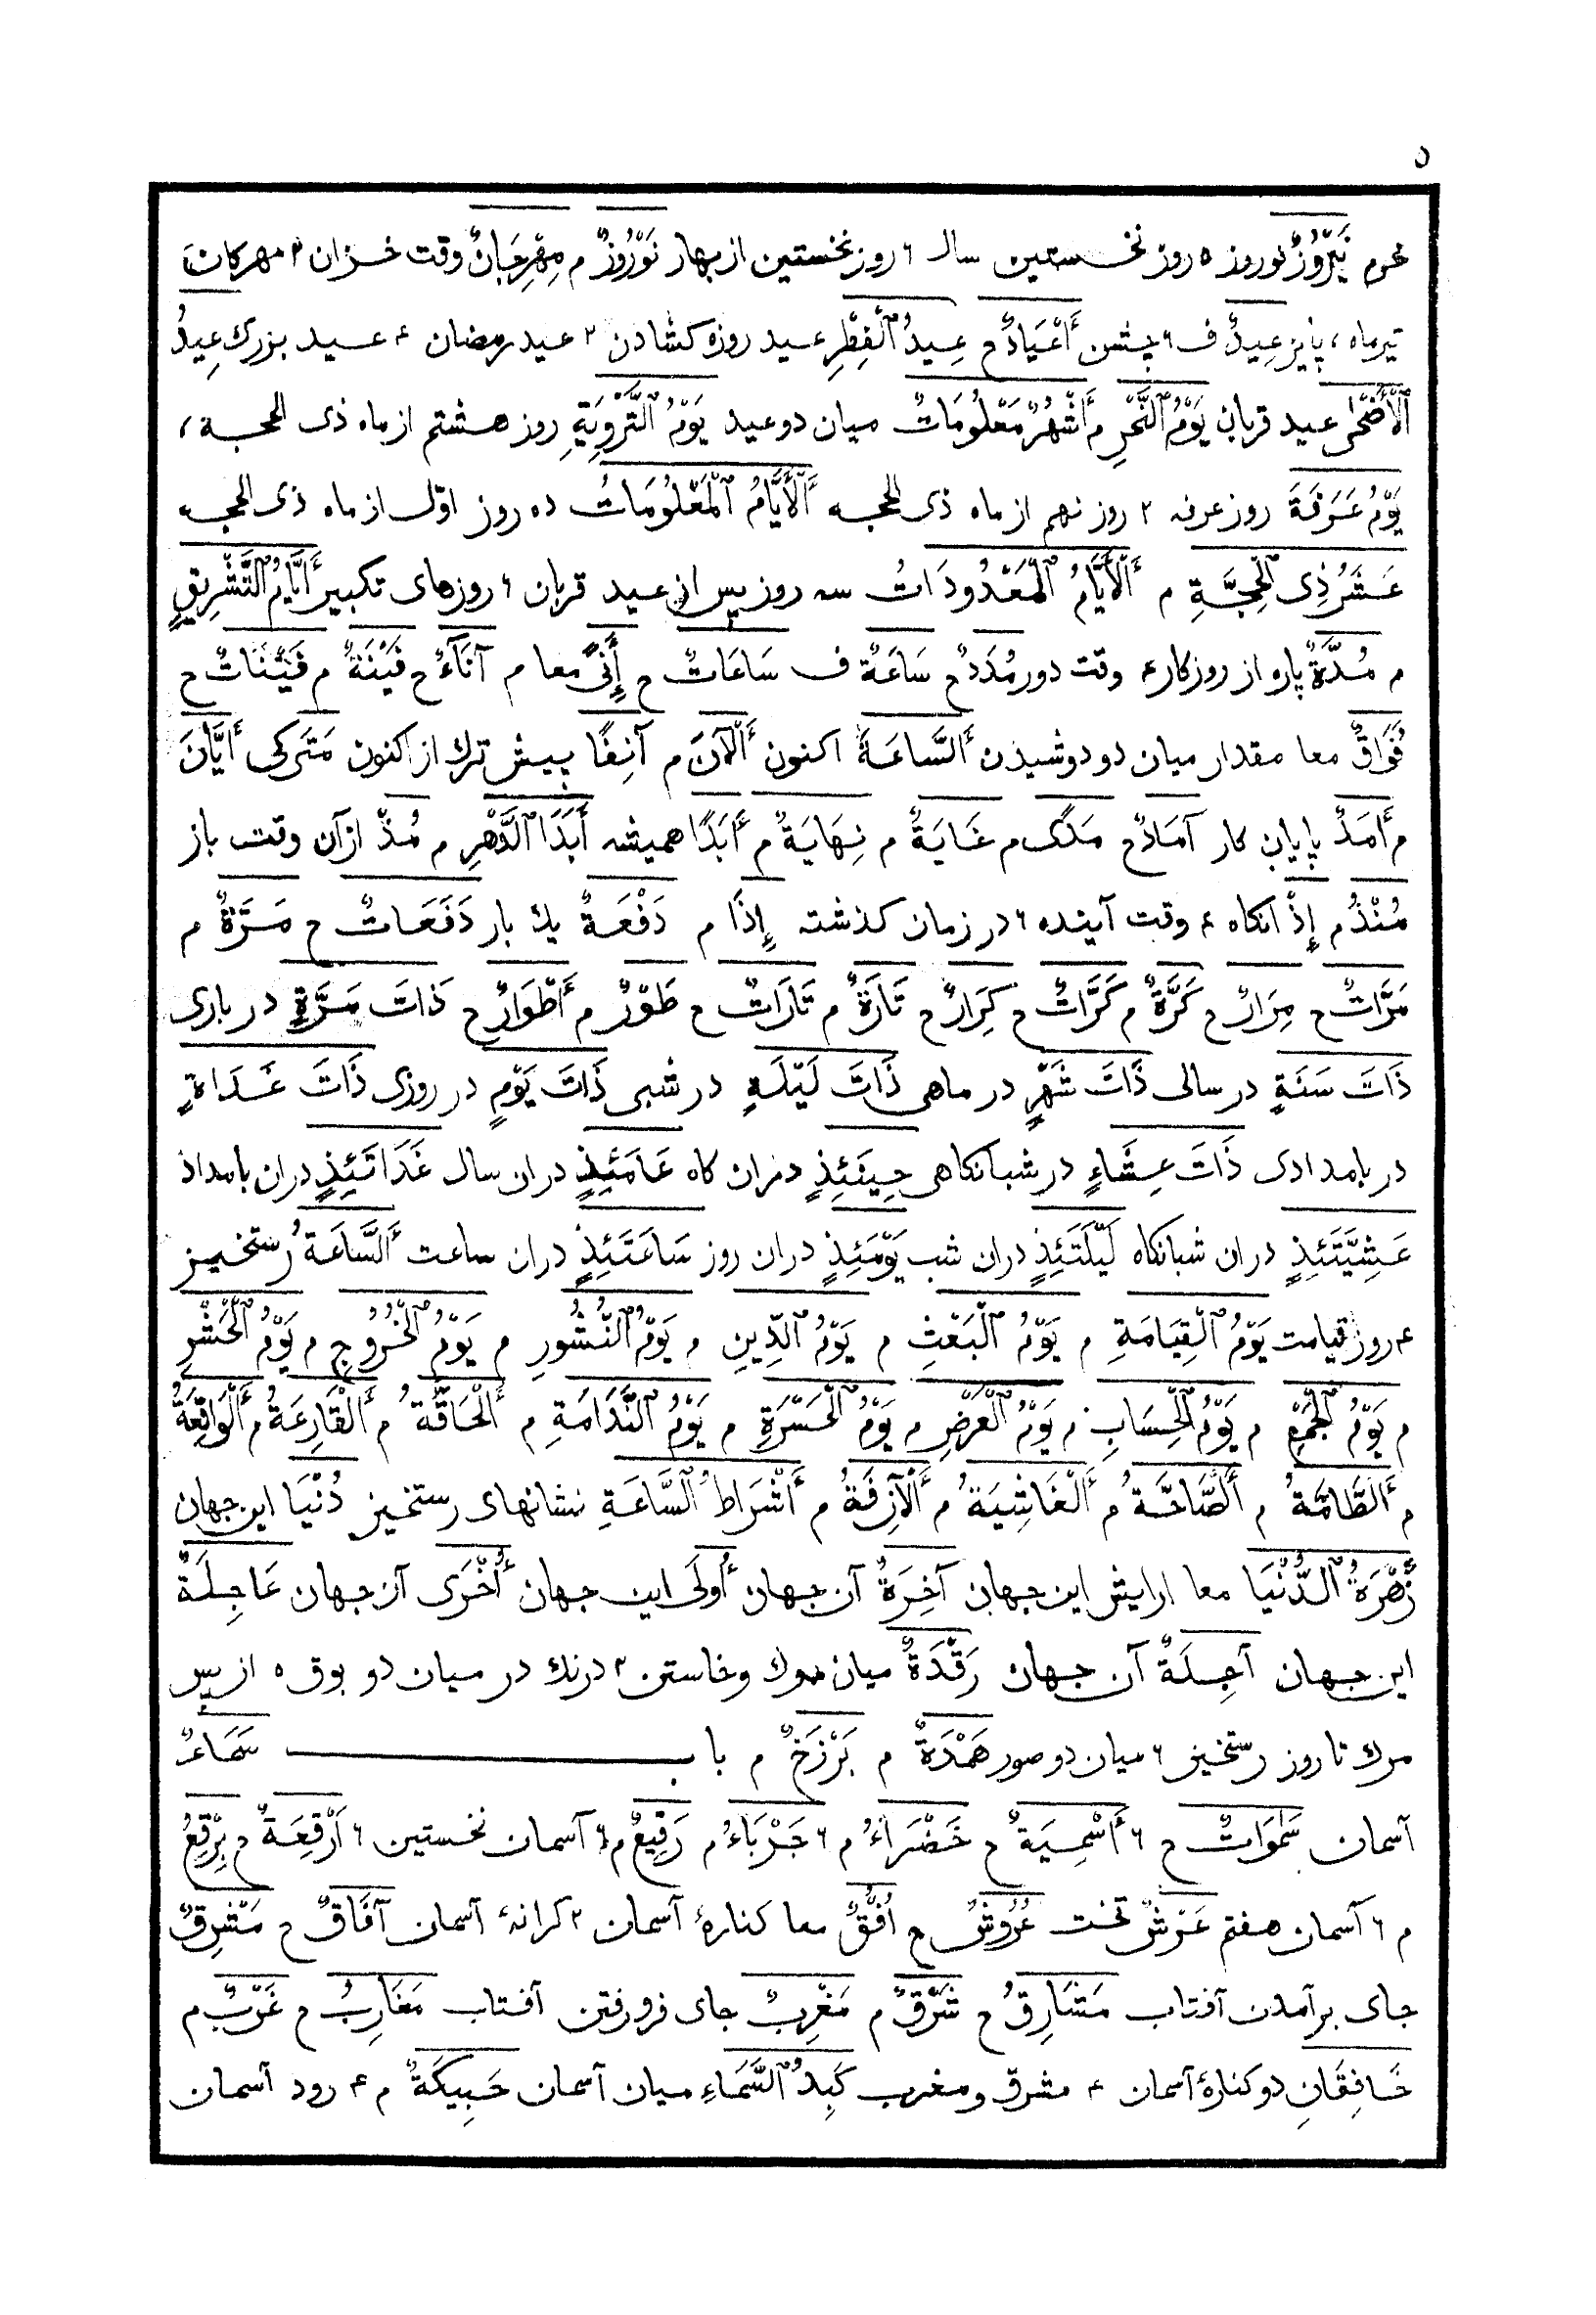 ۵
محرم نَيْرُوزٌ نوروز ۵ روز نخستين سال ۶ روز نخستين از بهار نَوْرُوزٌ م مِهْرِجَانٌ وقت خزان ۳ مهركان
تيرماه ، پايز عِيدٌ ف ۶ جشن أَعْيَادٌ ج عِيدُ ٱلْفِطْرِ عيد روزه كشادن ۲ عيد رمضان ۴ عيد بزرك عِيدُ
ٱلْأَضْحٰى عيد قربان يَوْمُ ٱلنَّحْرِ م أَشْهُرٌ مَعْلُومَاتٌ ميان دو عيد يَوْمُ ٱلتَّرْوِيَةِ روز هشتم از ماه ذى الحجه ،
يَوْمُ عَرَفَةَ روز عرفه ۲ روز نهم از ماه ذى الحجه أَلْأَيَّامُ ٱلْمَعْلُومَاتُ ده روز اوّل از ماه ذى الحجه
عَشَرُ ذِى ٱلْحِجَّةِ م أَلْأَيَّامُ ٱلْمَعْدُودَاتُ سه روز پس از عيد قربان ۶ روزهاى تكبير أَيَّامُ ٱلتَّشْرِيقِ
م مُدَّةٌ پاره از روزكار ۴ وقت دور مُدَدٌ ج سَاعَةٌ ف سَاعَاتٌ ج إِنًى معا م آنَآءٌ ج فَيْنَةٌ م فَيْنَاتٌ ج
فُوَاقٌ معا مقدار ميان دو دوشيذن أَلسَّاعَةَ اكنون أَلْآنَ م آنِفًا پيش ترك از اكنون مَتَى كى أَيَّانَ
م أَمَدٌ پايان كار آمَادٌ ج مَدًى م غَايَةٌ م نِهَايَةٌ م أَبَدًا هميشه أَبَدَ ٱلدَّهْرِ م مُذْ از آن وقت باز
مُنْذُ م إِذْ انكاه ۴ وقت آينده ۶ در زمان كذشته إِذَا م دَفْعَةٌ يك بار دَفَعَاتٌ ج مَرَّةٌ م
مَرَّاتٌ ج مِرَارٌ ج كَرَّةٌ م كَرَّاتٌ ج كِرَارٌ ج تَارَةٌ م تَارَاتٌ ج طَوْرٌ م أَطْوَارٌ ج ذَاتَ مَرَّةٍ در بارى
ذَاتَ سَنَةٍ در سالى ذَاتَ شَهْرٍ در ماهى ذَاتَ لَيْلَةٍ در شبى ذَاتَ يَوْمٍ در روزى ذَاتَ غَدَاةٍ
در بامدادى ذَاتَ عِشَاءٍ در شبانكاهى حِينَئِذٍ دران كاه عَامَئِذٍ دران سال غَدَاتَئِذٍ دران بامداد
عَشِيَّتَئِذٍ دران شبانكاه لَيْلَتَئِذٍ دران شب يَوْمَئِذٍ دران روز سَاعَتَئِذٍ دران ساعت أَلسَّاعَةُ رستخيز
۴ روز قيامت يَوْمُ ٱلْقِيَامَةِ م يَوْمُ ٱلْبَعْثِ م يَوْمُ ٱلدِّينِ م يَوْمُ ٱلنُّشُورِ م يَوْمُ ٱلْخُرُوجِ م يَوْمُ ٱلْحَشْرِ
م يَوْمُ ٱلْجَمْعِ م يَوْمُ ٱلْحِسَابِ م يَوْمُ ٱلْعَرْضِ م يَوْمُ ٱلْحَسْرَةِ م يَوْمُ ٱلنَّدَامَةِ م أَلْحَاقَّةُ م أَلْقَارِعَةُ م أَلْوَاقِعَةُ
م أَلطَّامَّةُ م أَلصَّاخَّةُ م أَلْغَاشِيَةُ م أَلْآزِفَةُ م أَشْرَاطُ ٱلسَّاعَةِ نشانهاى رستخيز دُنْيَا اين جهان
زَهْرَةُ ٱلدُّنْيَا معا ارايش اين جهان آخِرَةٌ آن جهان أُولَى اين جهان أُخْرَى آن جهان عَاجِلَةٌ
اين جهان آجِلَةٌ آن جهان رَقْدَةٌ ميان مرك وخاستن ۳ درنك در ميان دو بوق ۵ از پس
مرك تا روز رستخيز ۶ ميان دو صور هَمْدَةٌ م بَرْزَخٌ م باب سَمَاءٌ
آسمان سَمٰوَاتٌ ج ۶ أَسْمِيَةٌ ج خَضْرَاءُ م ۶ جَرْبَاءُ م رَقِيعٌ م ۶ آسمان نخستين ۶ أَرْقِعَةٌ ج بِرْقِعُ
م ۶ آسمان هفتم عَرْشٌ تخت عُرُوشٌ ج أُفُقٌ معا كنارهٔ آسمان ۲ كرانهٔ آسمان آفَاقٌ ج مَشْرِقٌ
جاى برآمدن آفتاب مَشَارِقُ ج شَرْقٌ م مَغْرِبٌ جاى فرورفتن آفتاب مَغَارِبُ ج غَرْبٌ م
خَافِقَانِ دو كنارهٔ آسمان ۴ مشرق ومغرب كَبِدُ ٱلسَّمَاءِ ميان آسمان حَبِيكَةٌ م ۴ رود آسمان